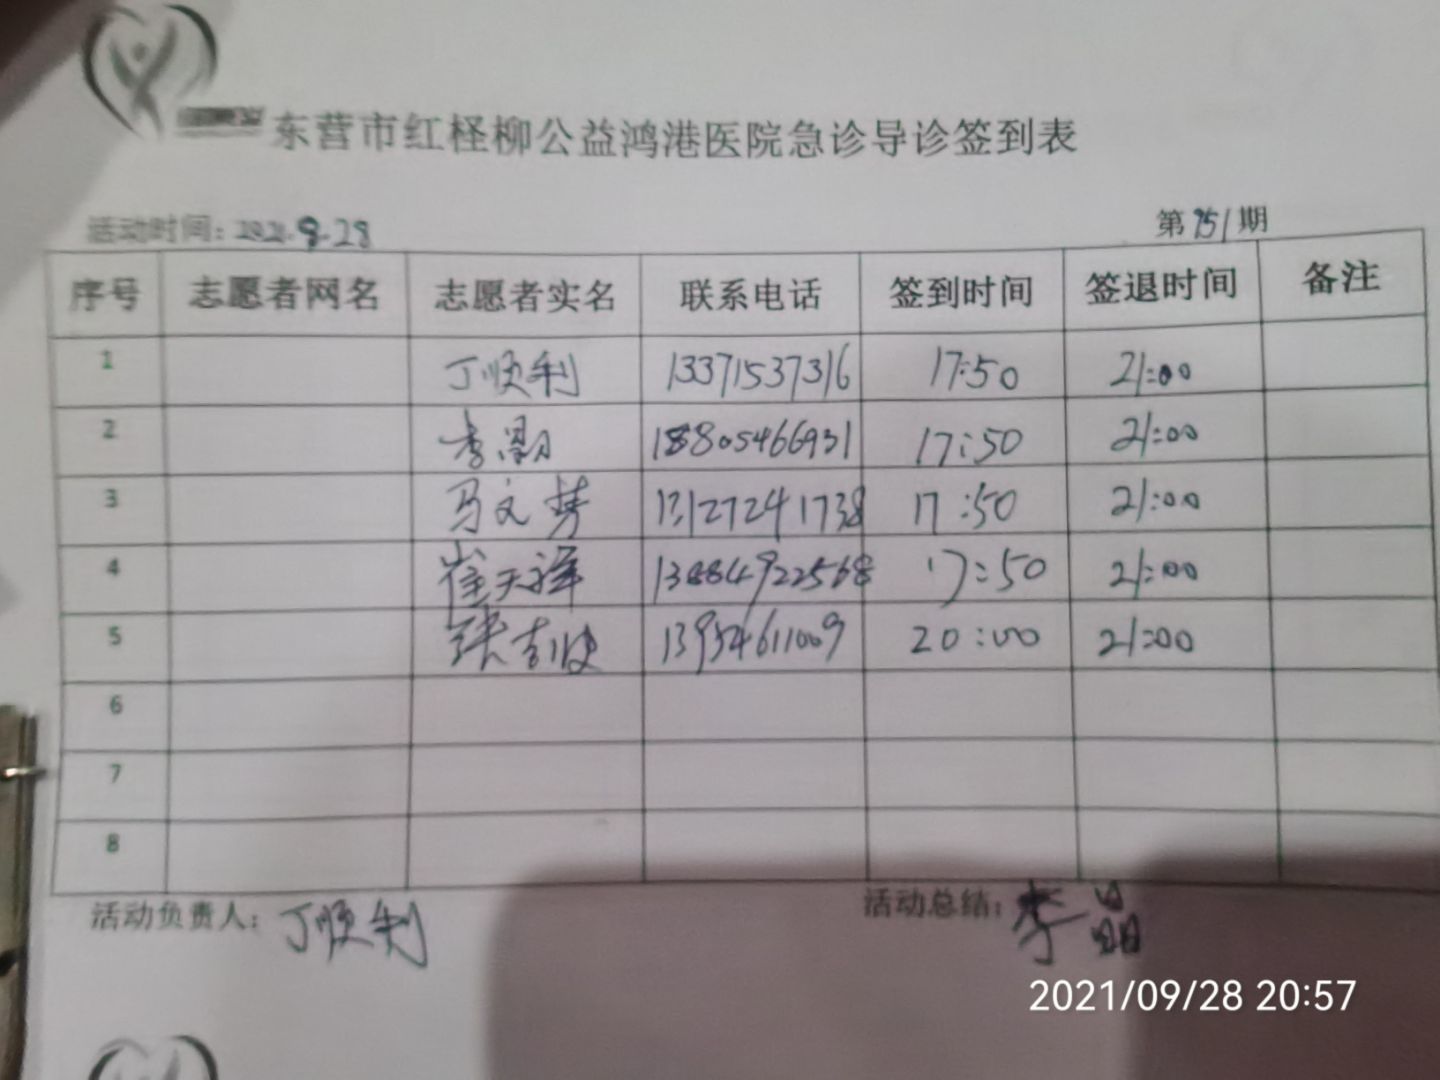 东营市红柽柳公益鸿港医院急诊导诊签到表
活动时间：2021.9.28 第751期
序号 志愿者网名 志愿者实名 联系电话 签到时间 签退时间 备注
1 丁顺利 13371537316 17:50 21:00
2 李晶 18805466931 17:50 21:00
3 马文 13127241738 17:50 21:00
4 崔天祥 13884922568 17:50 21:00
5 张 13954611009 20:00 21:00
6
7
8
活动负责人：丁顺利 活动总结：李晶
2021/09/28 20:57